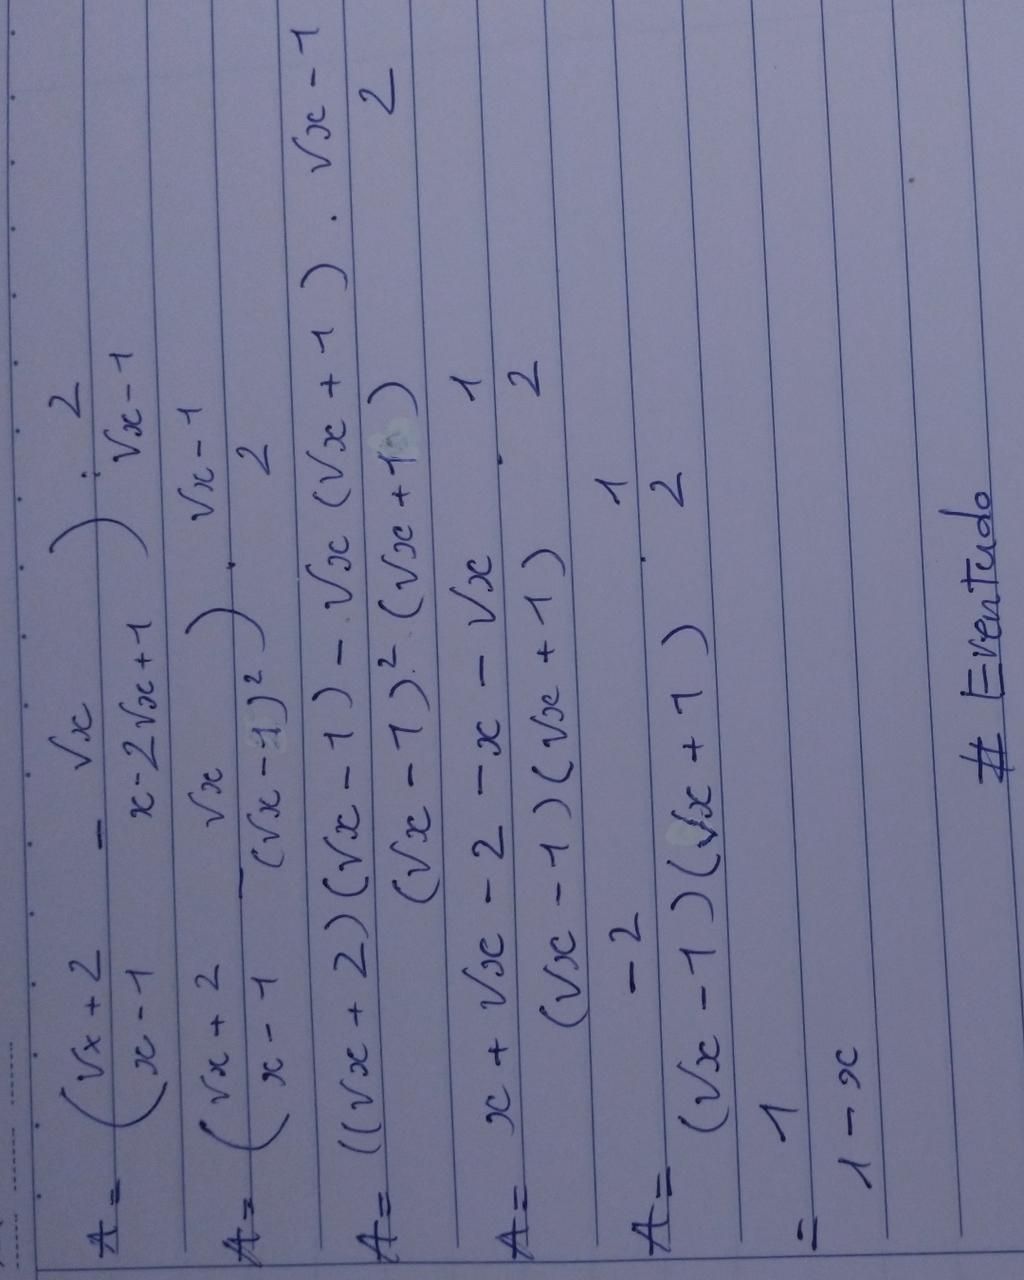 A = ( (√x + 2)/(x - 1) - √x/(x - 2√x + 1) ) : 2/(√x - 1)
A = ( (√x + 2)/(x - 1) - √x/(√x - 1)² ) . (√x - 1)/2
A = ((√x + 2)(√x - 1) - √x(√x + 1))/((√x - 1)² (√x + 1)) . (√x - 1)/2
A = (x + √x - 2 - x - √x)/((√x - 1)(√x + 1)) . 1/2
A = -2/((√x - 1)(√x + 1)) . 1/2
= 1/(1 - x)
# Eventudo